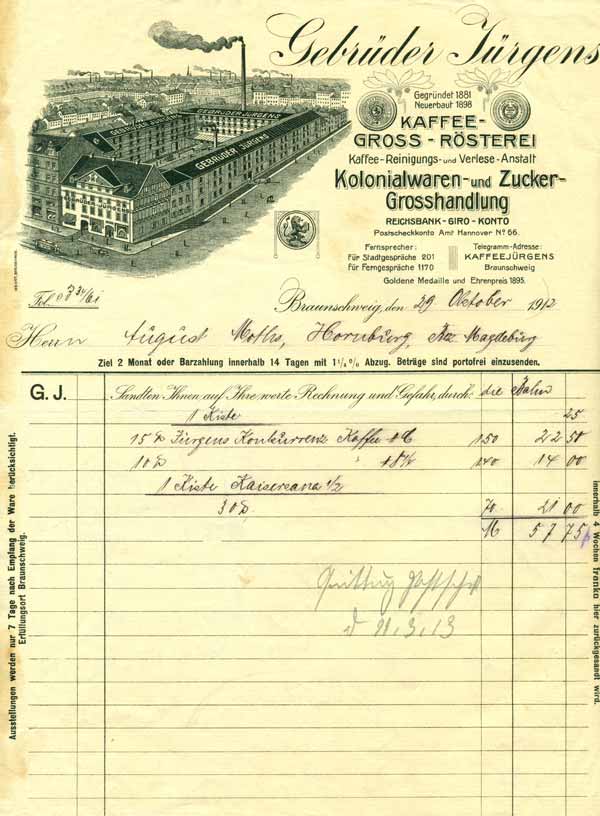 Gebrüder Jürgens
GEBRÜDER JÜRGENS
GEBRÜDER JÜRGENS
GEBRÜDER JÜRGENS
GEBRÜDER JÜRGENS
Gegründet 1881
Neuerbaut 1898
KAFFEE-
GROSS-RÖSTEREI
Kaffee-Reinigungs- und Verlese-Anstalt
Kolonialwaren- und Zucker-
Grosshandlung
REICHSBANK-GIRO-KONTO
Postscheckkonto Amt Hannover No 66.
Fernsprecher:
für Stadtgespräche 201
für Ferngespräche 1170
Telegramm-Adresse:
KAFFEEJÜRGENS
Braunschweig
Goldene Medaille und Ehrenpreis 1895.
Braunschweig, den 29 Oktober 1912
Herrn August Moths, Hornburg, Bez. Magdeburg
Ziel 2 Monat oder Barzahlung innerhalb 14 Tagen mit 1½% Abzug. Beträge sind portofrei einzusenden.
G. J. Sandten Ihnen auf Ihre werte Rechnung und Gefahr, durch: die Bahn
1 Kiste 25
15 Jürgens Konkurrenz Kaffee 150 22 50
10 140 14 00
1 Kiste Kaisereana 1/2
30 70 21 00
M 57 75
3.13
Ausstellungen werden nur 7 Tage nach Empfang der Ware berücksichtigt.
Erfüllungsort Braunschweig.
innerhalb 4 Wochen franko hier zurückgesandt wird.